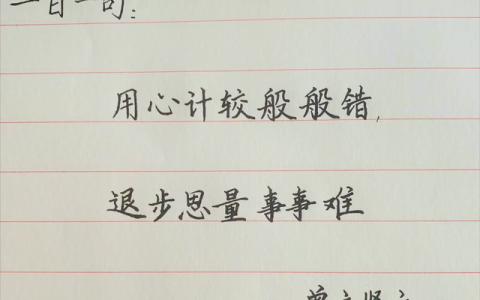 一日一句：
用心计较般般错，
退步思量事事难